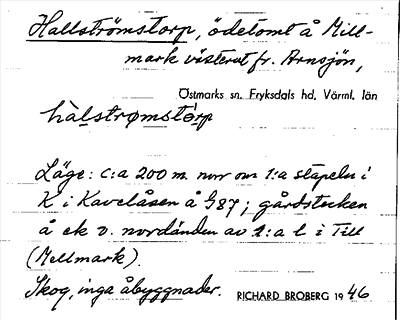 Hallströmstorp, ödetomt å Mill-
mark västerut fr. Arnsjön,
Östmarks sn. Fryksdals hd. Värml. län
hàlstrømstórp
Läge: c:a 200 m. nv om 1:a stapeln i
K i Kavelåsen å G87; gårdstecken
å ek v. nordänden av 1:a l i Till
(Mellmark).
Skog, inga åbyggnader. RICHARD BROBERG 1946